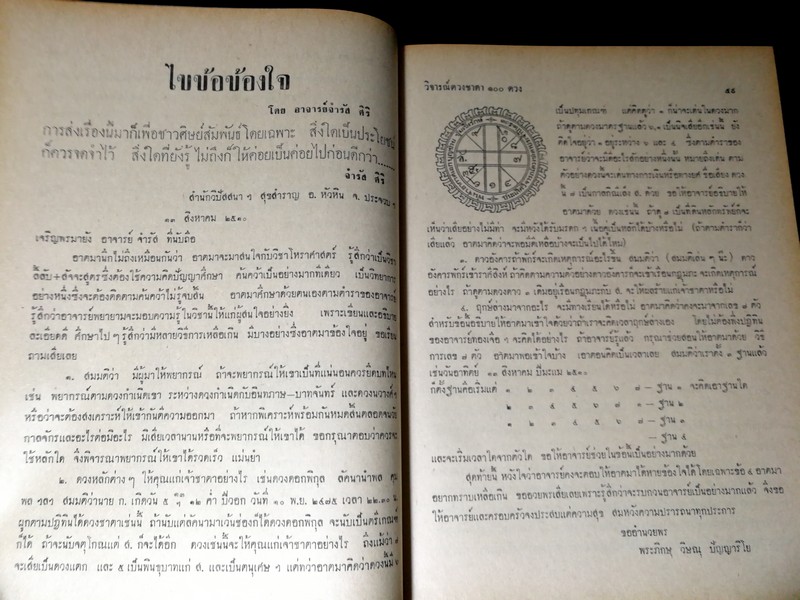 ไขข้อข้องใจ
โดย อาจารย์จำรัส ศิริ
การส่งเรื่องนี้มาก็เพื่อชาวศิษย์สัมพันธ์โดยเฉพาะ สิ่งใดเป็นประโยชน์
ก็ควรจดจำไว้ สิ่งใดที่ยังรู้ไม่ถึงก็ให้ค่อยเป็นค่อยไปก่อนดีกว่า
จำรัส ศิริ
สำนักวิปัสสนา ฯ สุขสำราญ อ. หัวหิน จ. ประจวบ ฯ
๑๓ สิงหาคม ๒๕๑๐
เจริญพรมายัง อาจารย์ จำรัส ที่นับถือ
อาตมานึกไม่ถึงเหมือนกันว่า อาตมาจะมาสนใจกับวิชาโหราศาสตร์ รู้สึกว่าเป็นวิชา
ลี้ลับ + สัจจะสูตรซึ่งต้องใช้ความคิดปัญญาศึกษา ค้นคว้าเป็นอย่างมากทีเดียว เป็นวิทยาการ
อย่างหนึ่งซึ่งจะต้องคิดตามค้นคว้าไม่รู้จบสิ้น อาตมาศึกษาด้วยตนเองตามตำราของอาจารย์
รู้สึกว่าอาจารย์พยายามจะมอบความรู้ในวิชานี้ให้แก่ผู้สนใจอย่างยิ่ง เพราะเขียนและอธิบาย
ละเอียดดี ศึกษาไป ๆ รู้สึกว่ามีหลายวิธีการเหลือเกิน มีบางอย่างซึ่งอาตมาข้องใจอยู่ ขอเรียน
ถามเสียเลย
๑. สมมติว่า มีผู้มาให้พยากรณ์ ถ้าจะพยากรณ์ให้เขาเป็นที่แน่นอนควรยึดบทไหน
เช่น พยากรณ์ตามดวงกำเนิดเขา ระหว่างดวงกำเนิดกับอินทภาษ-บาทจันทร์ และดวงนวางค์
หรือว่าจะต้องสงเคราะห์ให้เข้ากันตีความออกมา ถ้าหากพิเคราะห์พร้อมกันหมดสิ้นตลอดจน
กาลจักรและอะไรต่อมิอะไร มิเสียเวลานานหรือที่จะพยากรณ์ให้เขาได้ ขอกรุณาตอบว่าควรจะ
ใช้หลักใด จึงพิจารณาพยากรณ์ให้เขาได้รวดเร็ว แม่นยำ
๒. ดวงหลักต่าง ๆ ให้คุณแก่เจ้าชาตาอย่างไร เช่นดวงดอกพิกุล ลัคนานำพล
พล ฯลฯ สมมติว่านาย ก. เกิดวัน ๕ ๑๒ ค่ำ ปีวอก วันที่ ๑๐ พ.ย. ๒๔๗๕ เวลา ๒๒.๓๐ น.
ผูกตามปฏิทินได้ดวงชาตาเช่นนี้ ถ้านับแต่ลัคนามาเว้นช่องก็ได้ดวงดอกพิกุล จะนับเป็นตรีเกณฑ์
ก็ได้ ถ้าจะนับจตุโกณแต่ ส. ก็จะได้อีก ดวงเช่นนี้จะให้คุณแก่เจ้าชาตาอย่างไร ถึงแม้ว่า ๗
จะเสียเป็นดวงแตก และ ๕ เป็นพินธุบาทแก่ ส. และเป็นตนุเศษ ฯ แต่ทว่าอาตมาคิดว่าดวงนี้มี
วิจารณ์ดวงชาตา ๑๐๐ ดวง
๕๙
เป็นปทุมเกณฑ์ แต่คิดดูว่า ๑ ก็น่าจะเด่นในดวงมาก
ถ้าดูตามดวงมาตรฐานแล้ว ๑ เป็นนิจเสียอีกเช่นนี้ ยัง
คิดใจอยู่ว่า ๑ อยู่ระหว่าง ๒ และ ๔ ซึ่งตามตำราของ
อาจารย์ว่าจะมีดีอะไรสักอย่างหนึ่งนั้น หมายถึงเด่น ตาม
ตัวอย่างดวงนี้จะเด่นทางการเงินหรือทางยศ ชื่อเสียง ดวง
นี้ ๗ เป็นกาฬกิณีเล็ง ส. ด้วย ขอให้อาจารย์อธิบายให้
อาตมาด้วย ดวงเช่นนี้ ถ้าดู ๑ เป็นที่ดินหลักทรัพย์ก็จะ
เห็นว่าเสียอย่างไม่มีท่า จะมีทางได้รับมรดก ฯ เนื้อคู่เป็นหลักได้บ้างหรือไม่ (ถ้าดูตามตำราก็ว่า
เสียแล้ว อาตมาคิดว่าจะพอมีดีเหลือบางจะเป็นไปได้ไหม)
๓. ดาวองคารถ้าพักร์จะเกิดเหตุการณ์อะไรขึ้น สมมติว่า (สมมติเล่น ๆ นะ) ดาว
อังคารพักร์เข้าราศีสิงห์ ถ้าตีความตามความตัวอย่างดาวอังคารก็จะเข้าเรือนกฏุมภะ จะเกิดเหตุการณ์
อย่างไร ถ้าดูตามดวงดาว ๓ เดิมอยู่เรือนกฎุมภะกับ ส. จะให้ผลร้ายแก่เจ้าชาตาหรือไม่
๔. ฤกษ์ล่างมาจากอะไร จะมีทางเรียนได้หรือไม่ อาตมาคิดว่าคงจะมาจากเลข ๗ ตัว
สำหรับข้อนี้อธิบายให้อาตมาเข้าใจด้วยว่าถ้าเราจะคิดเวลาฤกษ์ล่างเอง โดยไม่ต้องพึ่งปฏิทิน
ของอาจารย์ทองเจือ ฯ จะคิดได้อย่างไร ถ้าอาจารย์รู้แล้ว กรุณาช่วยสอนให้อาตมาด้วย วิธี
การเลข ๗ ตัว อาตมาพอเข้าใจบ้าง เอาตอนคิดเป็นเวลาเลย สมมติว่าเราตั้ง ๓ ฐานแล้ว
เช่นวันอาทิตย์ ๑๓ สิงหาคม ปีมะแม ๒๕๑๐
ก็ตั้งฐานคือเริ่มแต่ ๑ ๒ ๓ ๔ ๕ ๖ ๗ — ฐาน ๑ จะคิดเอาฐานใด
๒ ๓ ๔ ๕ ๖ ๗ ๑ — ฐาน ๒
— ฐาน ๓
— ฐาน ๔
และจะเริ่มเวลาใดจากตัวใด ขอให้อาจารย์ช่วยในข้อนี้เป็นอย่างมากด้วย
สุดท้ายนี้ หวังใจว่าอาจารย์คงจะตอบให้อาตมาได้หายข้องใจได้ โดยเฉพาะข้อ ๔ อาตมา
อยากทราบเหลือเกิน ขออวยพรเสียเลยเพราะรู้สึกว่าจะรบกวนอาจารย์เป็นอย่างมากแล้ว จึงขอ
ให้อาจารย์และครอบครัวจงประสบแต่ความสุข สมหวังความปรารถนาทุกประการ
ขออำนวยพร
พระภิกษุ วิษณุ ปัญญาวิโย